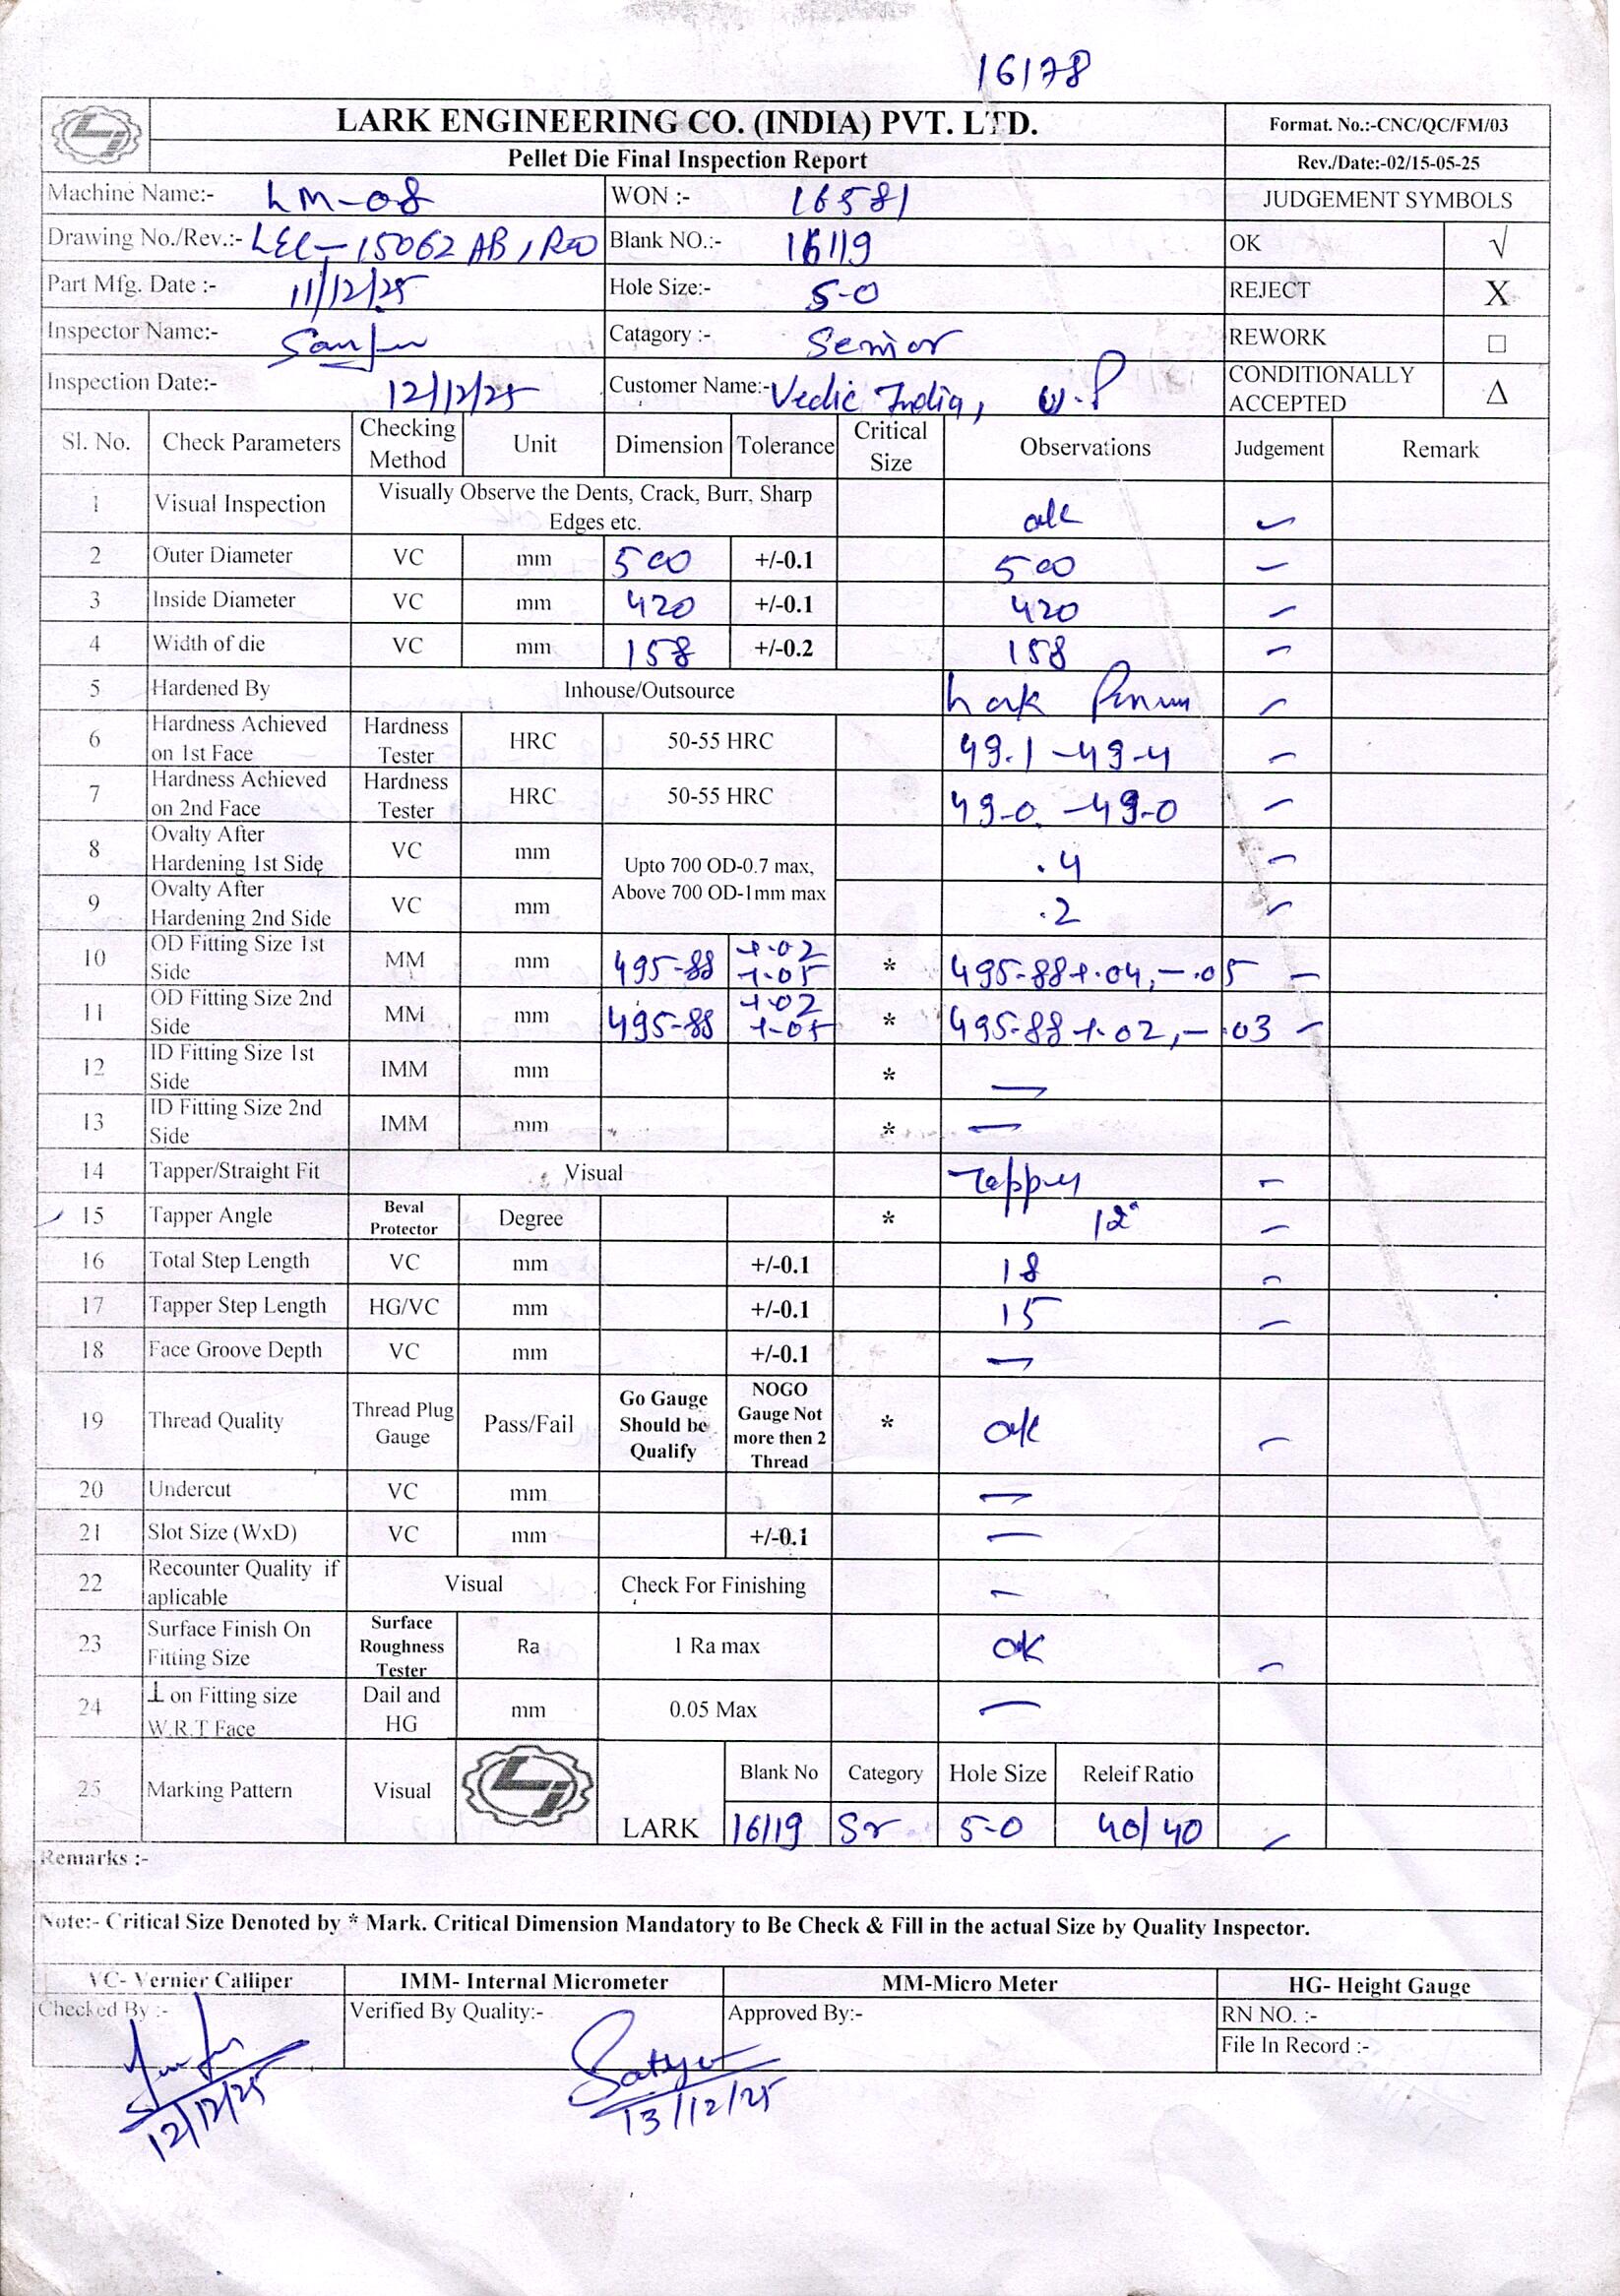 16178
LARK ENGINEERING CO. (INDIA) PVT. LTD.
Format. No.:-CNC/QC/FM/03
Pellet Die Final Inspection Report
Rev./Date:-02/15-05-25
Machine Name:- LM-08 WON :- 16581 JUDGEMENT SYMBOLS
Drawing No./Rev.:- LEC-15062 AB, R00 Blank NO.:- 16119 OK √
Part Mfg. Date :- 11/12/25 Hole Size:- 5-0 REJECT X
Inspector Name:- Catagory :- Senior REWORK □
Inspection Date:- 12/12/25 Customer Name:- Vedic India, U.P CONDITIONALLY ACCEPTED Δ
Sl. No. Check Parameters Checking Method Unit Dimension Tolerance Critical Size Observations Judgement Remark
1 Visual Inspection Visually Observe the Dents, Crack, Burr, Sharp Edges etc. ok
2 Outer Diameter VC mm 500 +/-0.1 500
3 Inside Diameter VC mm 420 +/-0.1 420
4 Width of die VC mm 158 +/-0.2 158
5 Hardened By Inhouse/Outsource Lark
6 Hardness Achieved on 1st Face Hardness Tester HRC 50-55 HRC 49.1 -49-4
7 Hardness Achieved on 2nd Face Hardness Tester HRC 50-55 HRC 49-0 -49-0
8 Ovalty After Hardening 1st Side VC mm Upto 700 OD-0.7 max, Above 700 OD-1mm max .4
9 Ovalty After Hardening 2nd Side VC mm .2
10 OD Fitting Size 1st Side MM mm 495-88 +.02 +.05 * 495-88+.04, -.05
11 OD Fitting Size 2nd Side MM mm 495-88 +.02 +.05 * 495-88+.02, -.03
12 ID Fitting Size 1st Side IMM mm * —
13 ID Fitting Size 2nd Side IMM mm * —
14 Tapper/Straight Fit Visual Tapper
15 Tapper Angle Beval Protector Degree * 12°
16 Total Step Length VC mm +/-0.1 18
17 Tapper Step Length HG/VC mm +/-0.1 15
18 Face Groove Depth VC mm +/-0.1 —
19 Thread Quality Thread Plug Gauge Pass/Fail Go Gauge Should be Qualify NOGO Gauge Not more then 2 Thread * ok
20 Undercut VC mm —
21 Slot Size (WxD) VC mm +/-0.1 —
22 Recounter Quality if aplicable Visual Check For Finishing -
23 Surface Finish On Fitting Size Surface Roughness Tester Ra 1 Ra max ok
24 ⊥ on Fitting size W.R.T Face Dail and HG mm 0.05 Max —
25 Marking Pattern Visual LARK Blank No Category Hole Size Releif Ratio
16119 Sr 5-0 40/40
Remarks :-
Note:- Critical Size Denoted by * Mark. Critical Dimension Mandatory to Be Check & Fill in the actual Size by Quality Inspector.
VC- Vernier Calliper IMM- Internal Micrometer MM-Micro Meter HG- Height Gauge
Checked By :- Verified By Quality:- Approved By:- RN NO. :-
File In Record :-
12/12/25 Satya 13/12/25